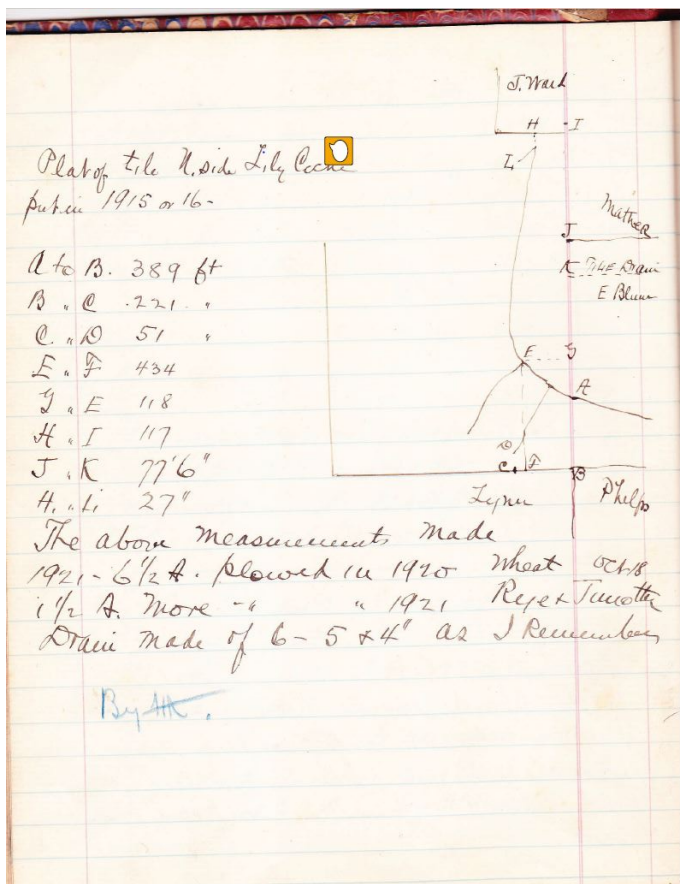 J. Ward
H - I
L
Plat of tile N. side Lily
put in 1915 or 16-
Mather
J
K Tile Drain
E Blum
A to B. 389 ft
B " C 221 "
C. " D 51 "
E " F 434
G " E 118
H " I 117
J " K 77'6"
H. " Li 27"
E G
A
D
C F B
Lynn Phelps
The above measurements made
1921 - 6 1/2 A. plowed in 1920 Wheat Oct 18
1 1/2 A. More - " " 1921 Rye & Timothy
Drain made of 6 - 5 & 4" as I Remember
By